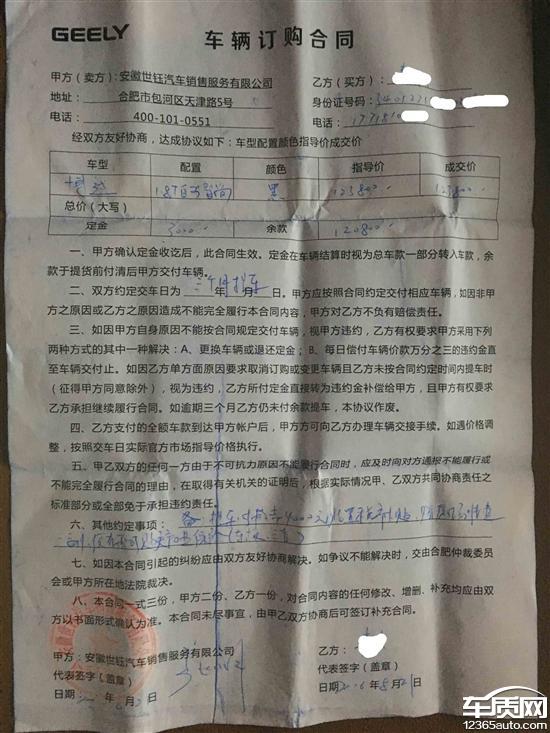 GEELY 车辆订购合同
甲方（卖方）：安徽世钰汽车销售服务有限公司 乙方（买方）：
地址：合肥市包河区天津路5号 身份证号码：
电话：400-101-0551 电话：
经双方友好协商，达成协议如下：车型配置颜色指导价成交价
车型 配置 颜色 指导价 成交价
黑 123800 123800
总价（大写）
定金 3000 余款 120800
一、甲方确认定金收讫后，此合同生效。定金在车辆结算时视为总车款一部分转入车款，余
款于提货前付清后甲方交付车辆。
二、双方约定交车日为 三个月提车 年 月 日。甲方应按照合同约定交付相应车辆，如因非甲
方之原因或乙方之原因造成不能完全履行本合同内容，甲方对乙方不负有赔偿责任。
三、如因甲方自身原因不能按合同规定交付车辆，视甲方违约，乙方有权要求甲方采用下列
两种方式的其中一种解决：A、更换车辆或退还定金；B、每日偿付车辆价款万分之三的违约金直
至车辆交付止。如因乙方单方面原因要求取消订购或变更车辆且乙方未按合同约定时间内提车时
（征得甲方同意除外），视为违约，乙方所付定金直接转为违约金补偿给甲方，且甲方有权要求
乙方承担继续履行合同。如逾期三个月乙方仍未付余款提车，本协议作废。
四、乙方支付的全额车款到达甲方帐户后，甲方方可向乙方办理车辆交接手续。如遇价格调
整，按照交车日实际官方市场指导价格执行。
五、甲乙双方的任何一方由于不可抗力原因不能履行合同时，应及时向对方通报不能履行或
不能完全履行合同的理由，在取得有关机关的证明后，根据实际情况甲、乙双方共同协商责任之
标准部分或全部免于承担违约责任。
六、其他约定事项：
七、如因本合同引起的纠纷应由双方友好协商解决。如争议不能解决时，交由合肥仲裁委员
会或甲方所在地法院裁决。
八、本合同一式三份，甲方二份、乙方一份，对合同内容的任何修改、增删、补充均应由双
方以书面形式确认为准。本合同未尽事宜，由甲乙双方协商后可签订补充合同。
甲方：安徽世钰汽车销售服务有限公司 乙方：
代表签字（盖章） 代表签字（盖章）
日期 日期
车质网
www.12365auto.com